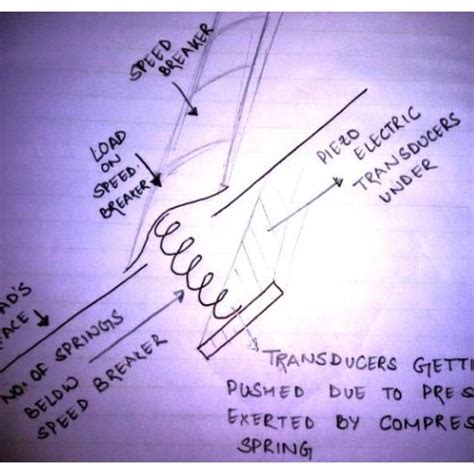 SPEED
BREAKER
LOAD
ON
SPEED.
BREAKER
PIEZO
ELECTRIC
TRANSDUCERS
UNDER
NO. OF SPRINGS
BELOW
SPEED BREAKER
TRANSDUCERS
PUSHED DUE TO
EXERTED BY
SPRING